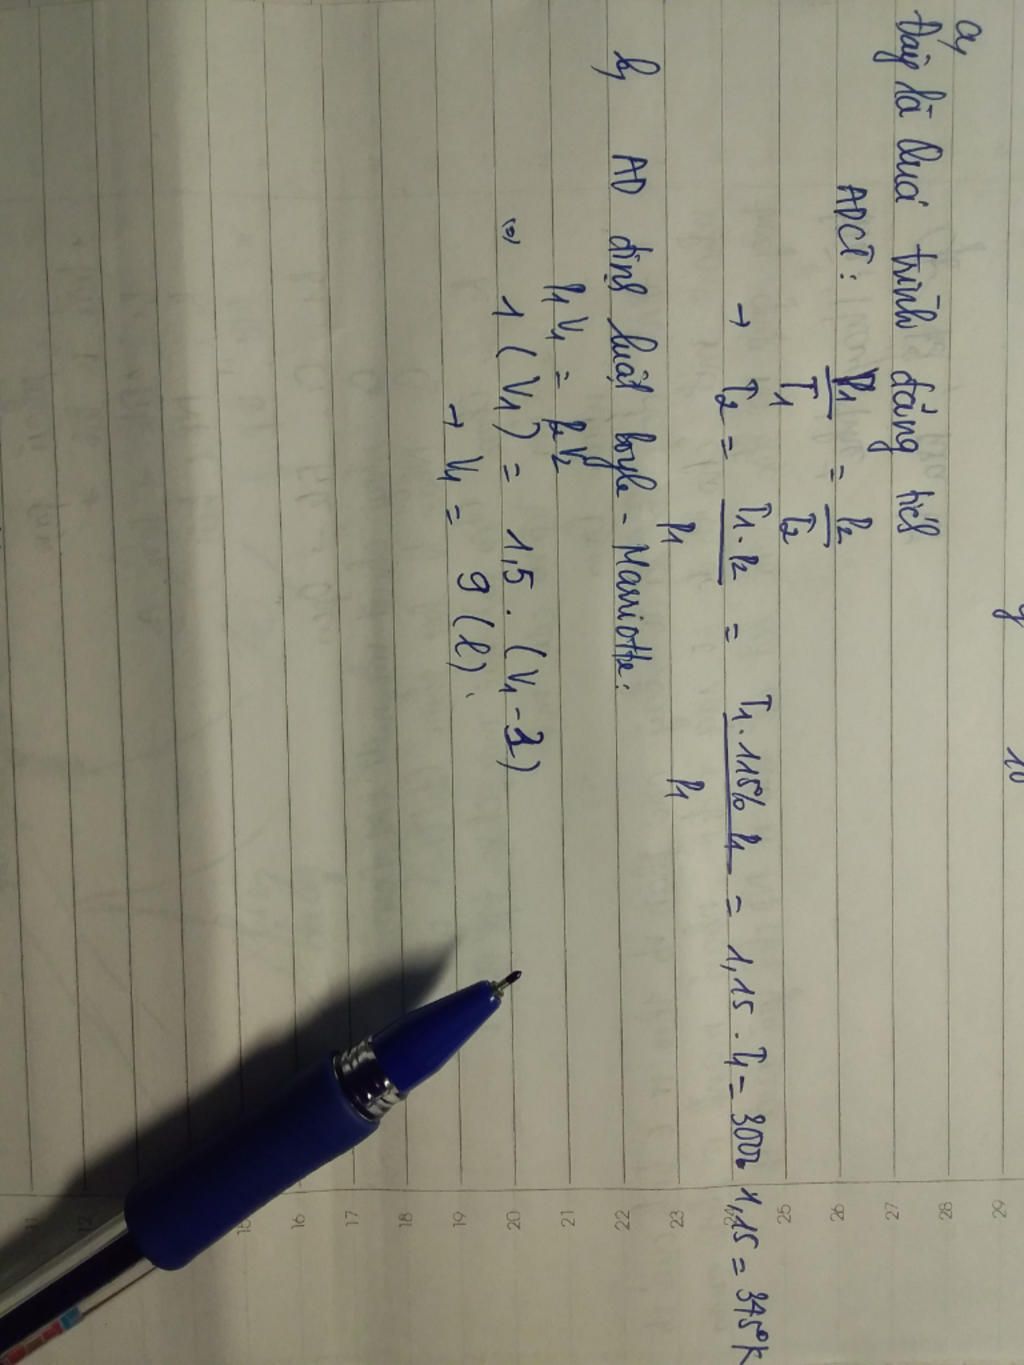 a,
Đây là Quá trình đẳng tích
ADCT: P1/T1 = P2/T2
→ T2 = T1.P2/P1 = T1.115% P1/P1 = 1,15.T1 = 300. 1,15 = 345°K
b, AD định luật boyle - Mariotte:
P1V1 = P2V2
(=) 1 (V1) = 1,5. (V1 - 3)
→ V1 = 9 (l).
10
11
12
15
16
17
18
19
20
21
22
23
24
25
26
27
28
29